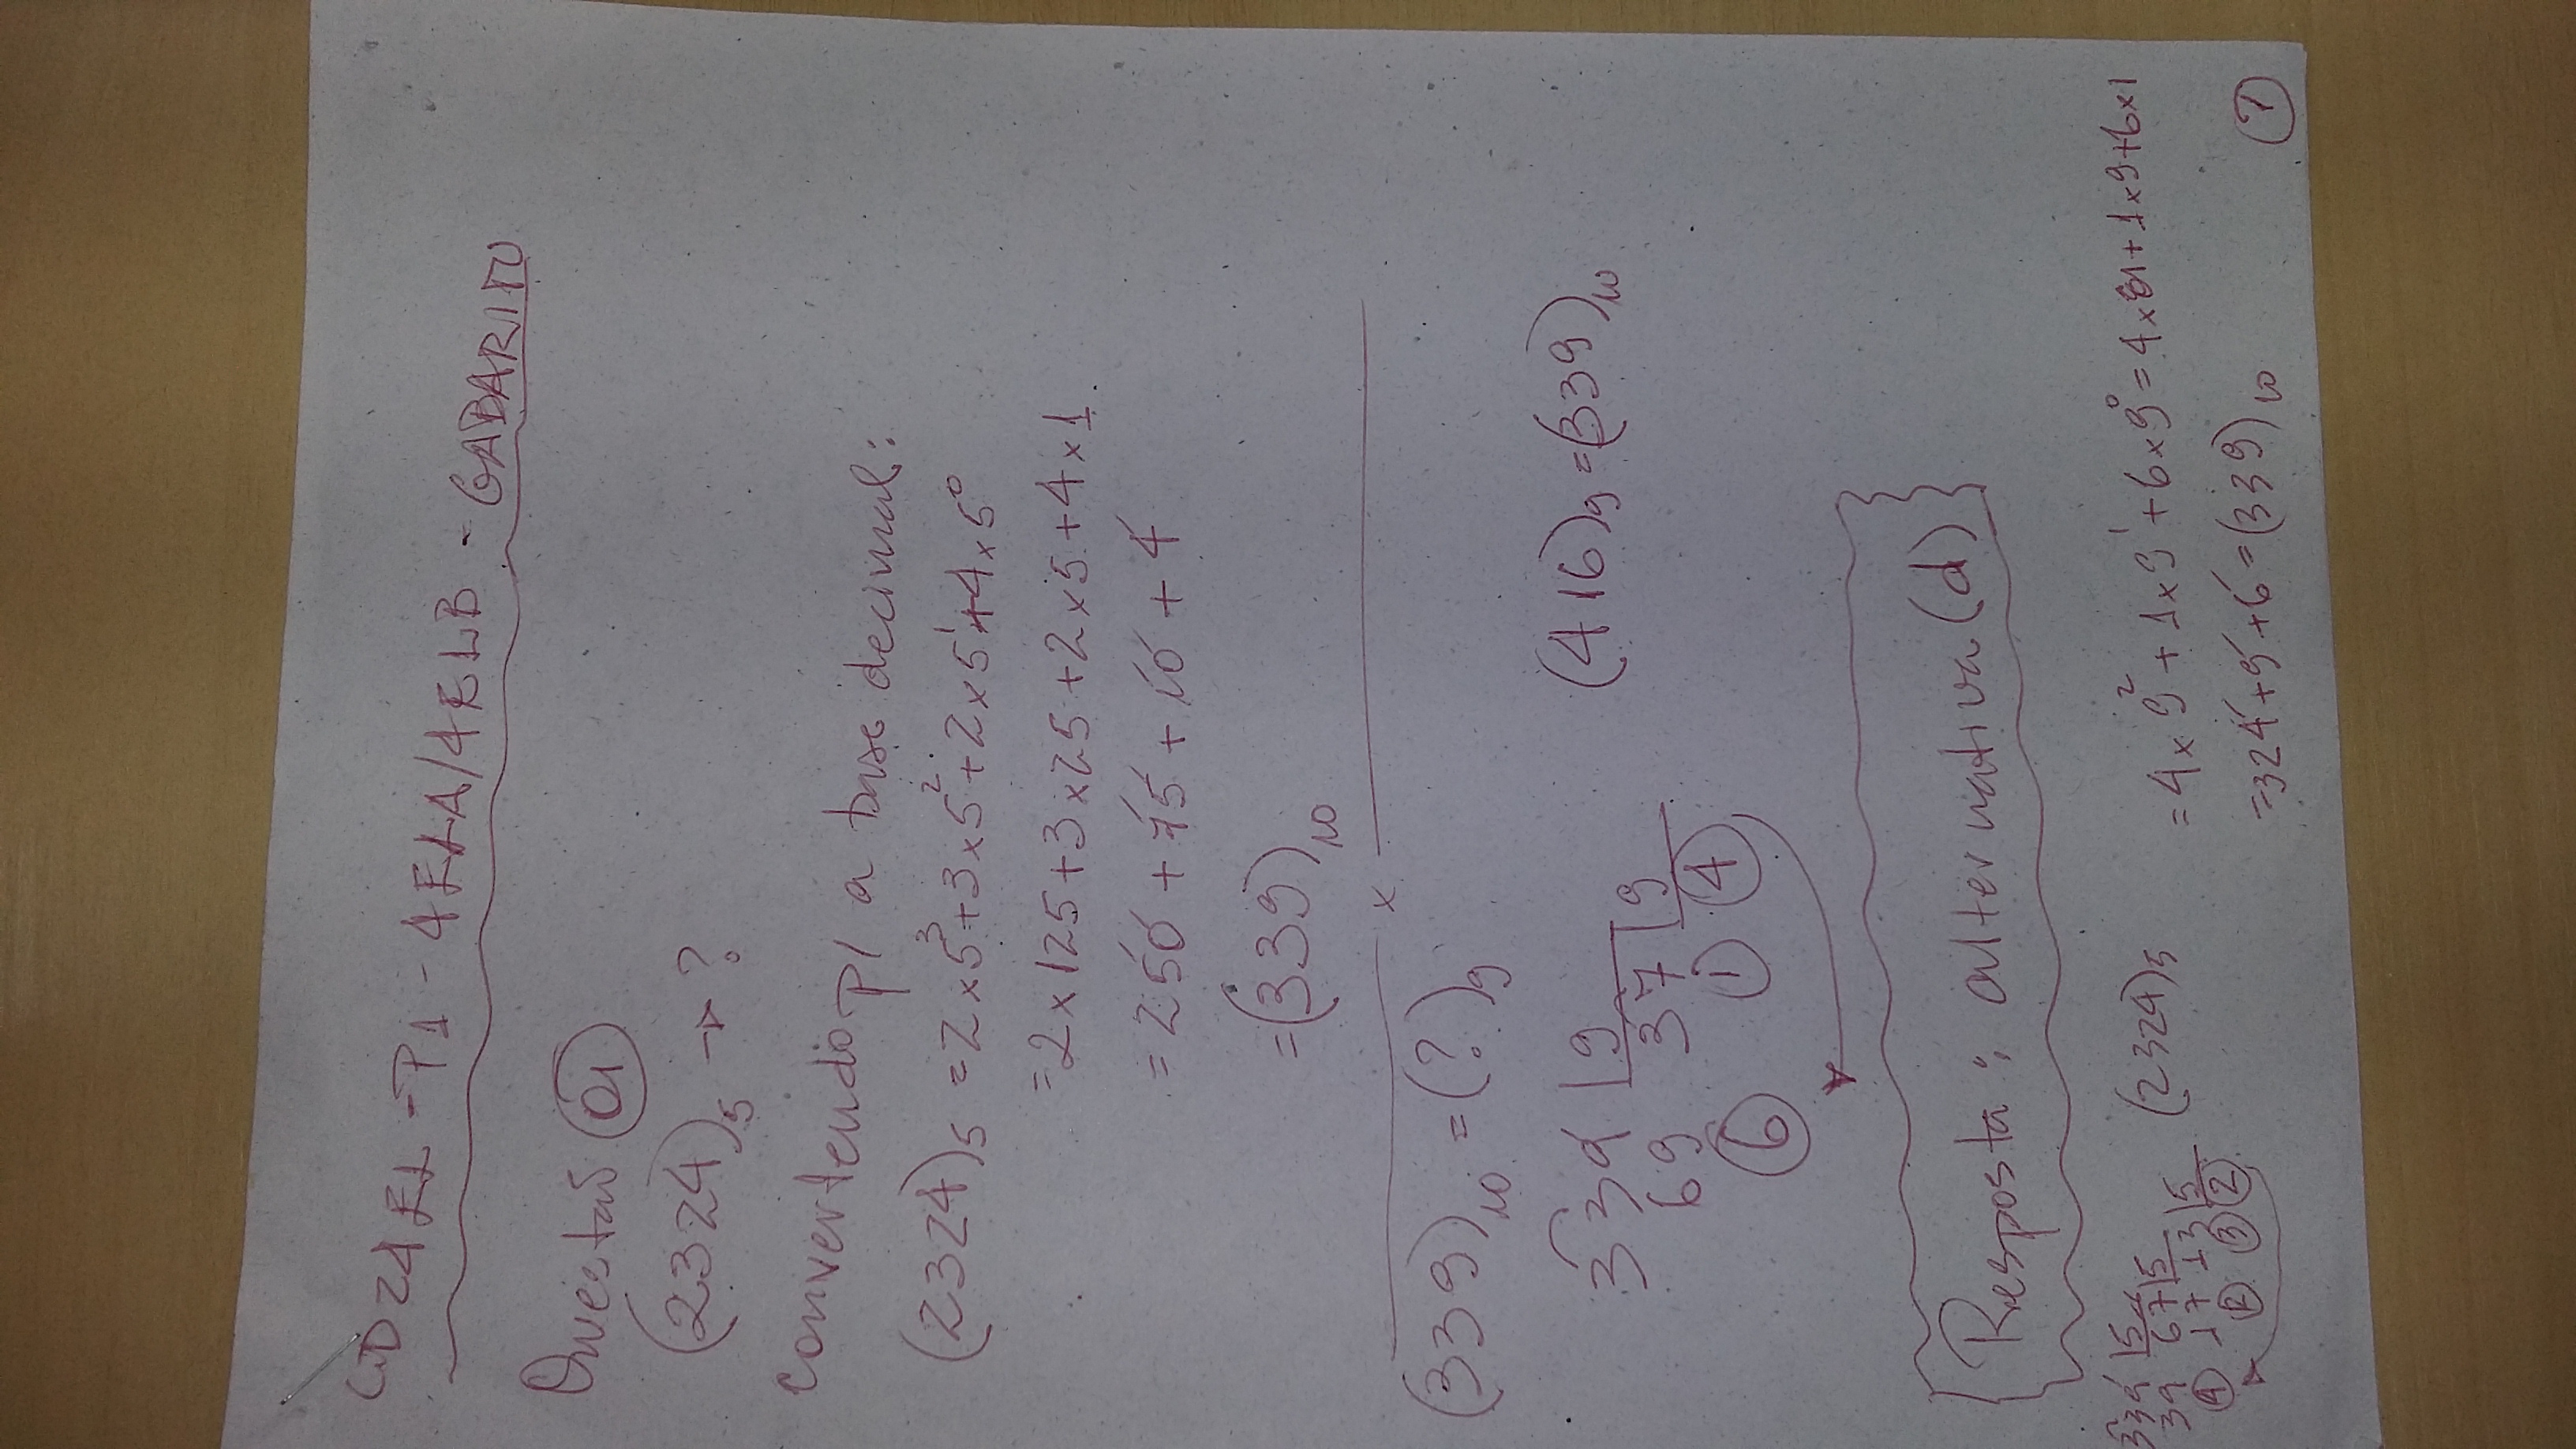 CD24EL - P1 - 4ELA/4ELB - GABARITO
Questão 01
(2324)5 → ?
Convertendo p/ a base decimal:
(2324)5 = 2x5³+3x5²+2x5¹+4x5⁰
=2x125+3x25+2x5+4x1
= 250 + 75 + 10 + 4
=(339)10
x
(339)10 = (?)9
339 9
69 37 9
6 1 4
(416)9=(339)10
Resposta: alternativa (d)
339 5
39 67 5
4 17 13 5
2 3 2
(2324)5
=4x9²+1x9¹+6x9⁰=4x81+1x9+6x1
=324+9+6=(339)10
1